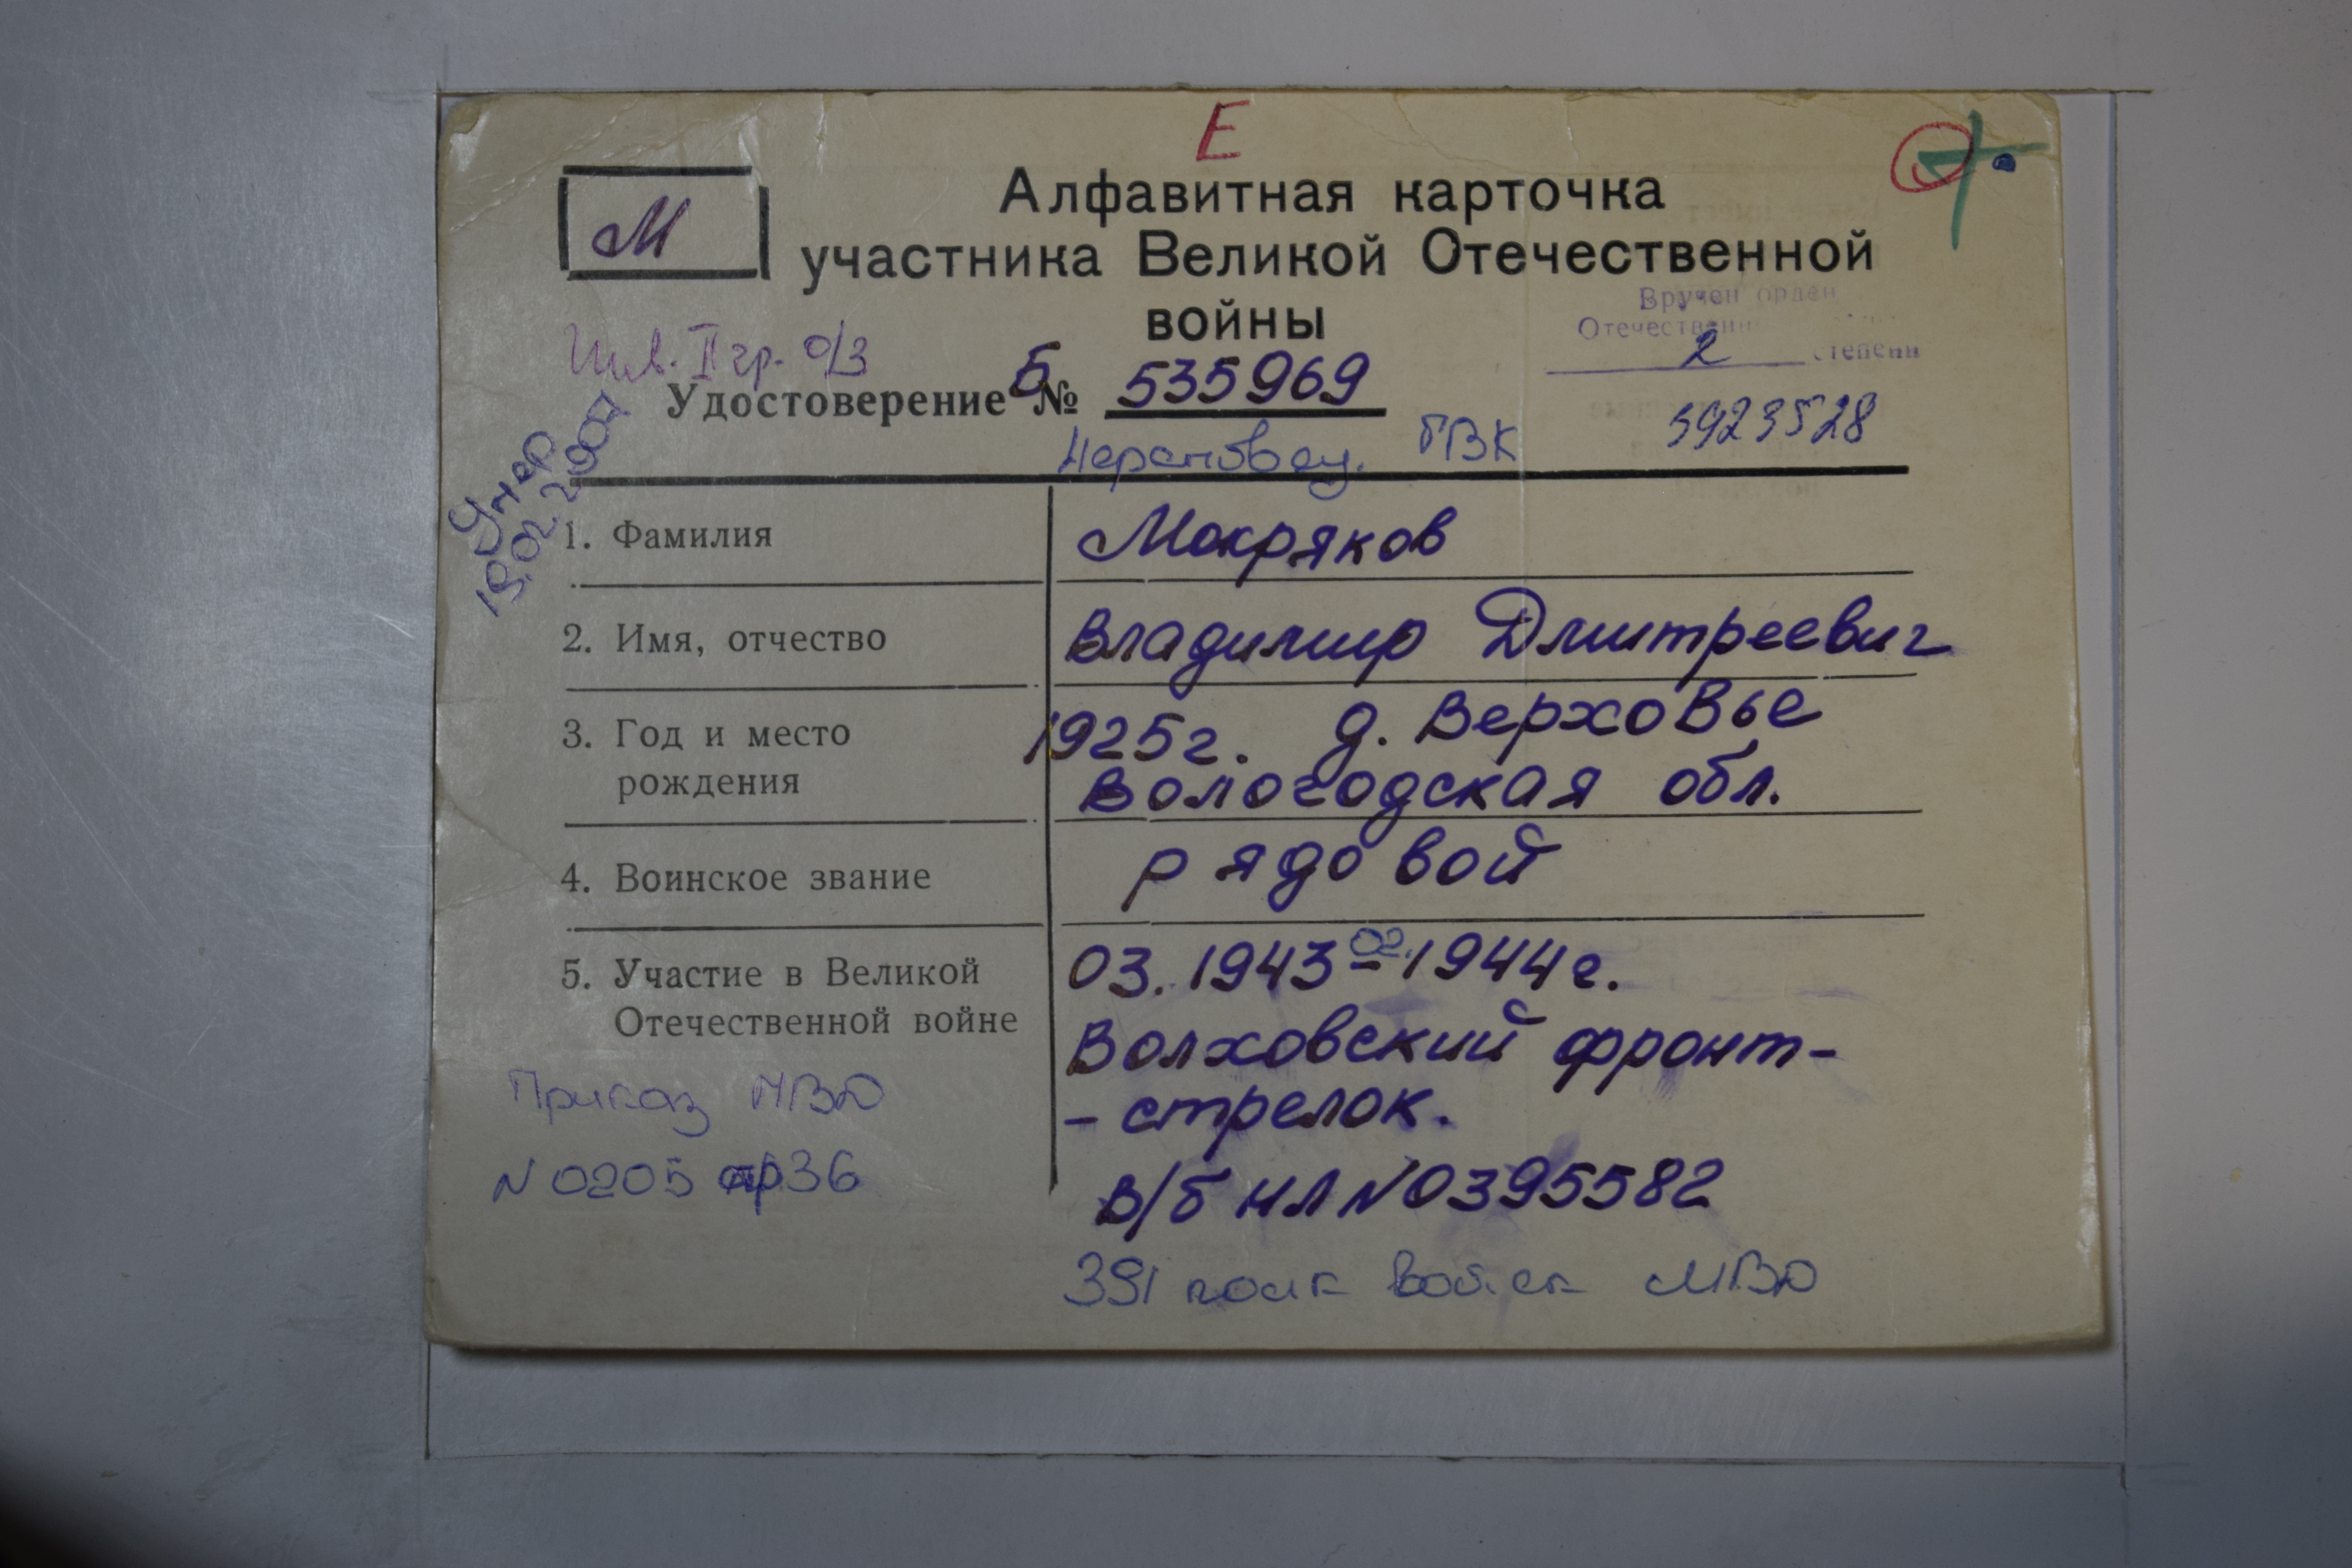 Е
М
Алфавитная карточка
участника Великой Отечественной
войны
Вручен орден
Отечественной
2 степени
5923528
Инв. II гр. о/з
Удостоверение Б № 535969
Череповец. ГВК
Умер
19.02.2007
1. Фамилия
Мокряков
2. Имя, отчество
Владимир Дмитреевич
3. Год и место
рождения
1925г. д. Верховье
Вологодская обл.
4. Воинское звание
рядовой
5. Участие в Великой
Отечественной войне
03.1943 - 02.1944г.
Волховский фронт-
- стрелок.
Приказ МВД
N 0205 36
в/б НЛ N 0395582
391 полк войск МВД